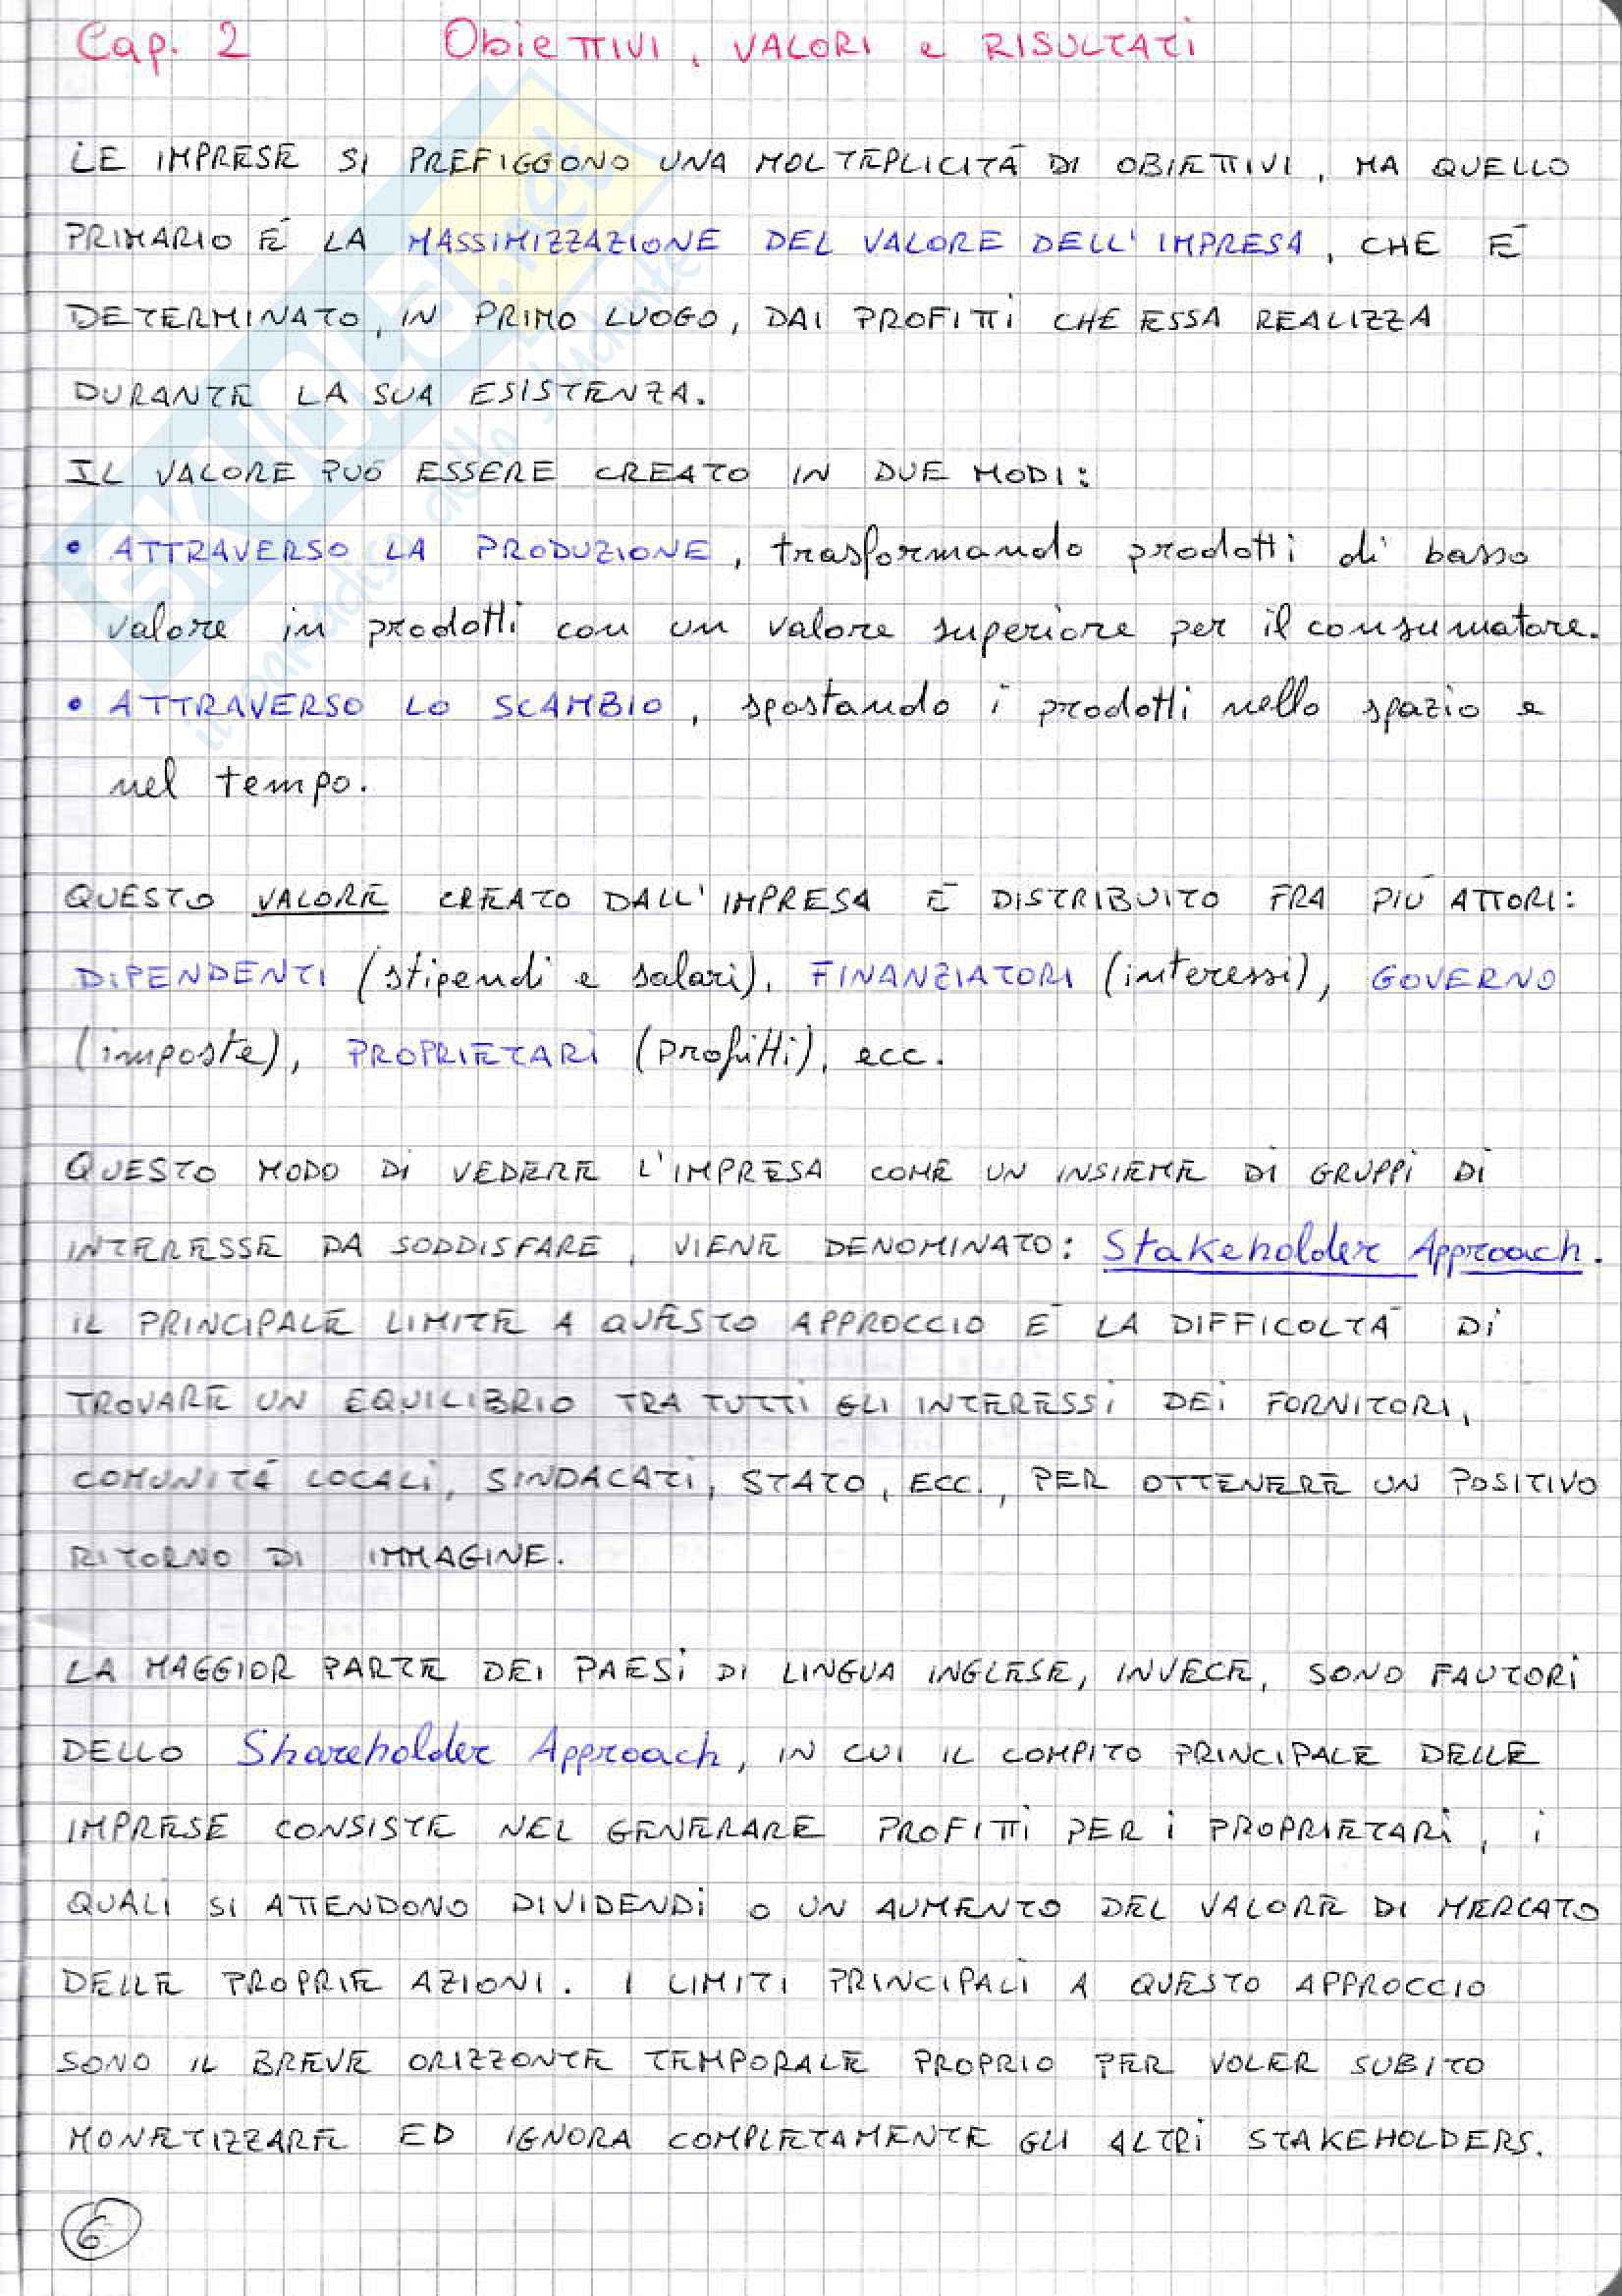 Cap. 2 Obiettivi, VALORI e RISULTATI
LE IMPRESE SI PREFIGGONO UNA MOLTEPLICITÀ DI OBIETTIVI, MA QUELLO
PRIMARIO È LA MASSIMIZZAZIONE DEL VALORE DELL'IMPRESA, CHE È
DETERMINATO, IN PRIMO LUOGO, DAI PROFITTI CHE ESSA REALIZZA
DURANTE LA SUA ESISTENZA.
IL VALORE PUÒ ESSERE CREATO IN DUE MODI:
• ATTRAVERSO LA PRODUZIONE, trasformando prodotti di basso
valore in prodotti con un valore superiore per il consumatore.
• ATTRAVERSO LO SCAMBIO, spostando i prodotti nello spazio e
nel tempo.
QUESTO VALORE CREATO DALL'IMPRESA È DISTRIBUITO FRA PIÙ ATTORI:
DIPENDENTI (stipendi e salari), FINANZIATORI (interessi), GOVERNO
(imposte), PROPRIETARI (profitti), ecc.
QUESTO MODO DI VEDERE L'IMPRESA COME UN INSIEME DI GRUPPI DI
INTERESSE DA SODDISFARE, VIENE DENOMINATO: Stakeholder Approach.
IL PRINCIPALE LIMITE A QUESTO APPROCCIO È LA DIFFICOLTÀ DI
TROVARE UN EQUILIBRIO TRA TUTTI GLI INTERESSI DEI FORNITORI,
COMUNITÀ LOCALI, SINDACATI, STATO, ECC., PER OTTENERE UN POSITIVO
RITORNO DI IMMAGINE.
LA MAGGIOR PARTE DEI PAESI DI LINGUA INGLESE, INVECE, SONO FAUTORI
DELLO Shareholder Approach, IN CUI IL COMPITO PRINCIPALE DELLE
IMPRESE CONSISTE NEL GENERARE PROFITTI PER I PROPRIETARI, I
QUALI SI ATTENDONO DIVIDENDI O UN AUMENTO DEL VALORE DI MERCATO
DELLE PROPRIE AZIONI. I LIMITI PRINCIPALI A QUESTO APPROCCIO
SONO IL BREVE ORIZZONTE TEMPORALE PROPRIO PER VOLER SUBITO
MONETIZZARE ED IGNORA COMPLETAMENTE GLI ALTRI STAKEHOLDERS.
6
SKUOLA.net
il paradiso dello studente